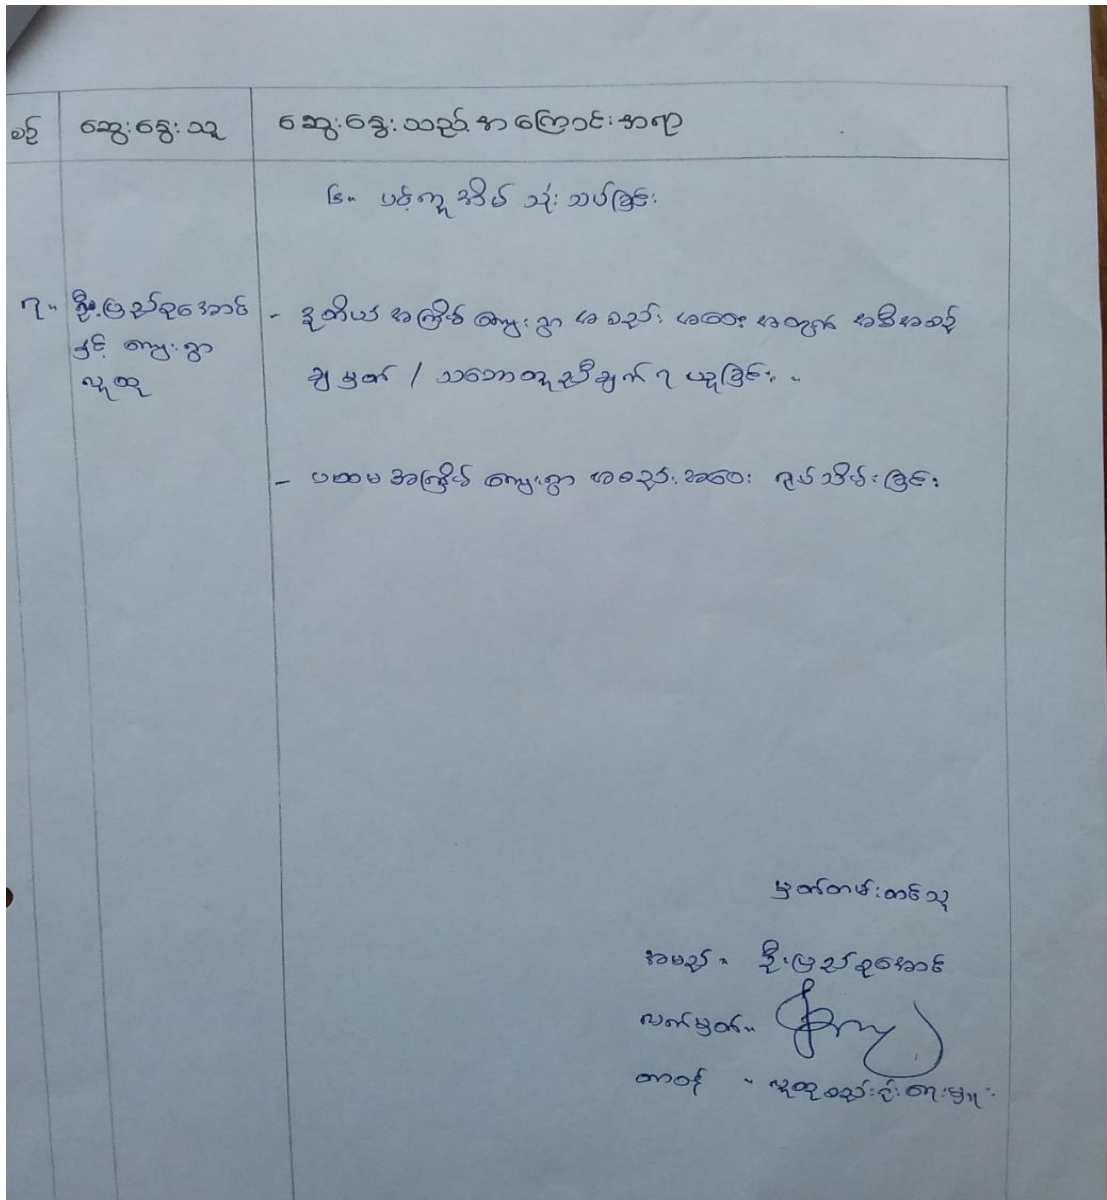 စဉ် ဆွေးနွေးသူ ဆွေးနွေးသည့်အကြောင်းအရာ
ပင့်ကူအိမ် သုံးသပ်ခြင်း
၇။ ဦးပြည့်စုအောင် - ဒုတိယအကြိမ် ကျေးရွာ အစည်းအဝေး အတွက် အစီအစဉ်
နှင့် ကျေးရွာ ချမှတ် / သဘောတူညီချက် ရယူခြင်း။
လူထု
- ပထမအကြိမ် ကျေးရွာ အစည်းအဝေး ရုပ်သိမ်းခြင်း
မှတ်တမ်းတင်သူ
အမည် ။ ဦးပြည့်စုအောင်
လက်မှတ် ။
တာဝန် ။ လူထုစည်းရုံးရေးမှူး